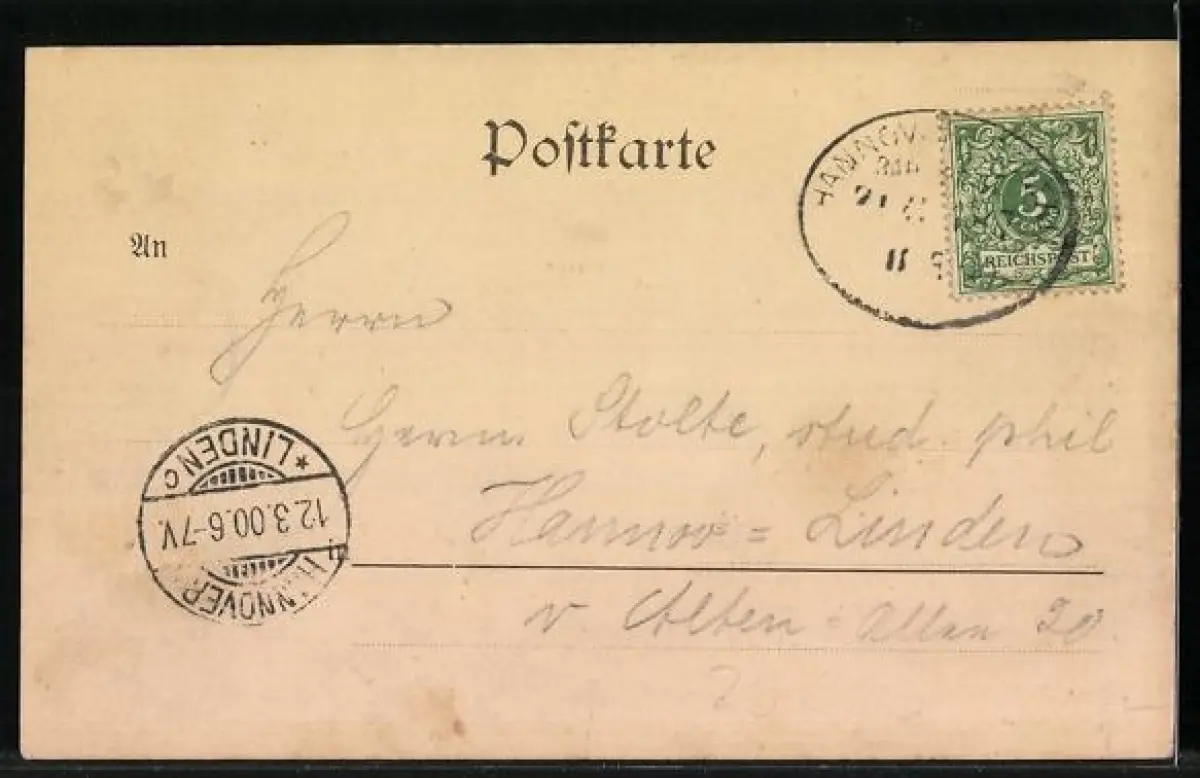 Postkarte
HANNOV
5
REICHSPOST
An
Herrn
Herrn Stolte, stud. phil
Hannov = Linden
v. Alten = Allee 20
* LINDEN C
12.3.00.6-7V.
HANNOVER